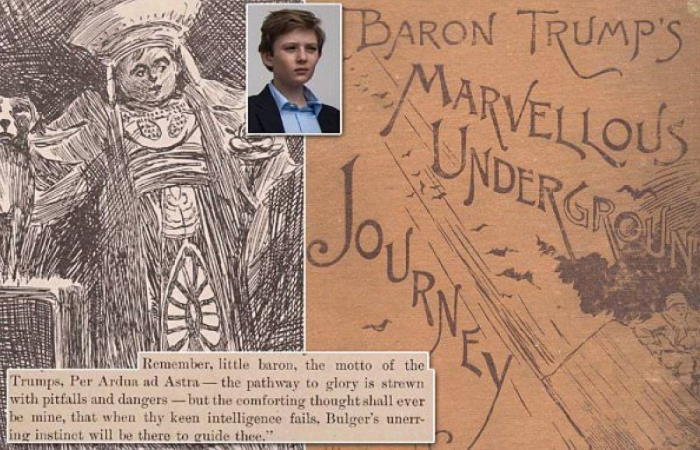 BARON TRUMP'S
MARVELLOUS
UNDERGROUN
JOURNEY
Remember, little baron, the motto of the
Trumps, Per Ardua ad Astra — the pathway to glory is strewn
with pitfalls and dangers — but the comforting thought shall ever
be mine, that when thy keen intelligence fails, Bulger's unerr-
ing instinct will be there to guide thee."